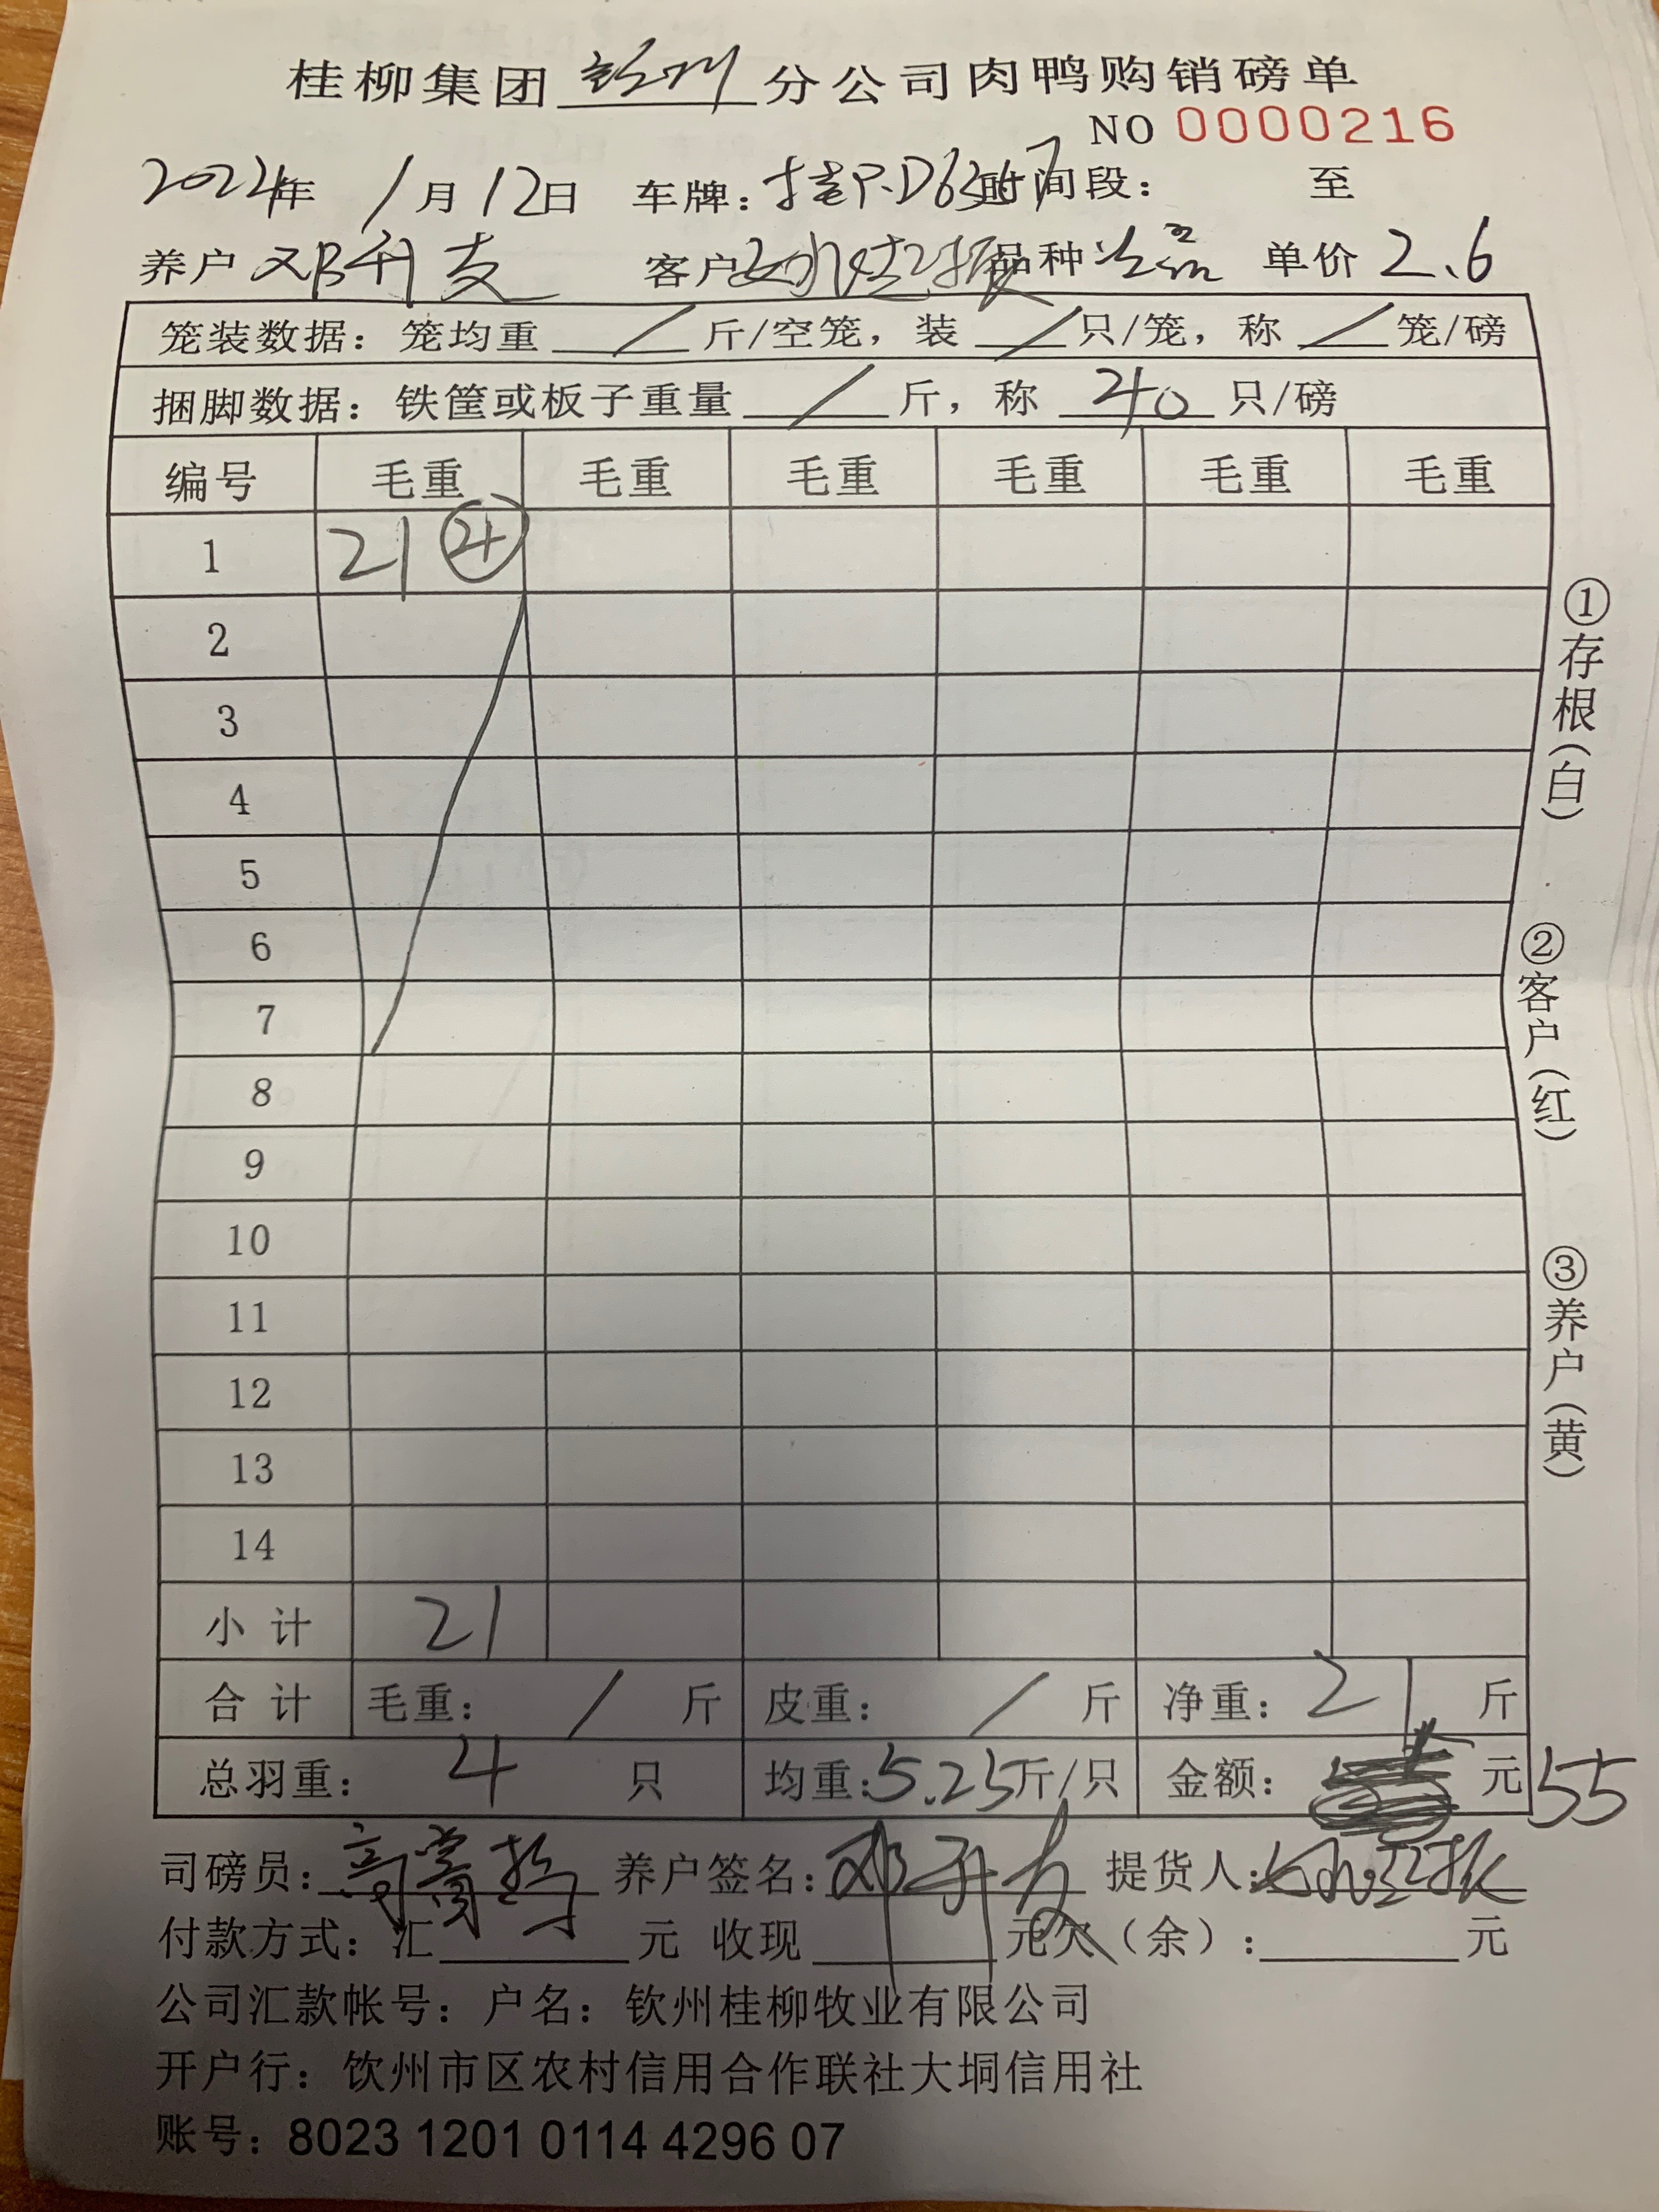 桂柳集团 分公司肉鸭购销磅单
NO 0000216
2022年 1月12日 车牌: 桂P.D6 时间段: 至
养户 邓升支 客户 品种 单价 2.6
笼装数据: 笼均重 / 斤/空笼, 装 / 只/笼, 称 / 笼/磅
捆脚数据: 铁筐或板子重量 / 斤, 称 40 只/磅
编号 毛重 毛重 毛重 毛重 毛重 毛重
1 21 ④
2
3
4
5
6
7
8
9
10
11
12
13
14
小计 21
合计 毛重: / 斤 皮重: / 斤 净重: 21 斤
总羽重: 4 只 均重: 5.25 斤/只 金额: 元 55
司磅员: 养户签名: 邓升 提货人:
付款方式: 汇 元 收现 元欠(余): 元
公司汇款帐号: 户名: 钦州桂柳牧业有限公司
开户行: 钦州市区农村信用合作联社大垌信用社
账号: 8023 1201 0114 4296 07
①存根(白)
②客户(红)
③养户(黄)